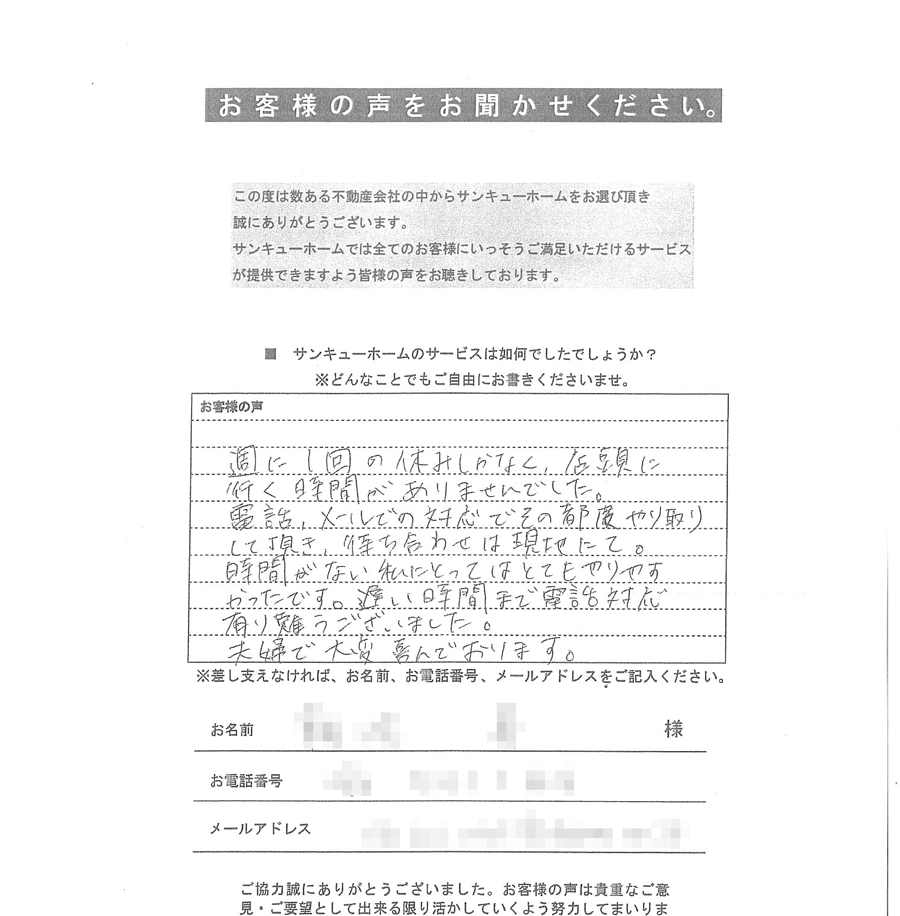 お客様の声をお聞かせください。
この度は数ある不動産会社の中からサンキューホームをお選び頂き
誠にありがとうございます。
サンキューホームでは全てのお客様にいっそうご満足いただけるサービス
が提供できますよう皆様の声をお聴きしております。
■ サンキューホームのサービスは如何でしたでしょうか？
※どんなことでもご自由にお書きくださいませ。
お客様の声
週に1回の休みしかなく、店頭に
行く時間がありませんでした。
電話、メールでの対応でその都度やり取り
して頂き、待ち合わせは現地にて。
時間がない私にとってはとてもやりやす
かったです。遅い時間まで電話対応
有り難うございました。
夫婦で大変喜んでおります。
※差し支えなければ、お名前、お電話番号、メールアドレスをご記入ください。
お名前 様
お電話番号
メールアドレス
ご協力誠にありがとうございました。お客様の声は貴重なご意
見・ご要望として出来る限り活かしていくよう努力してまいりま